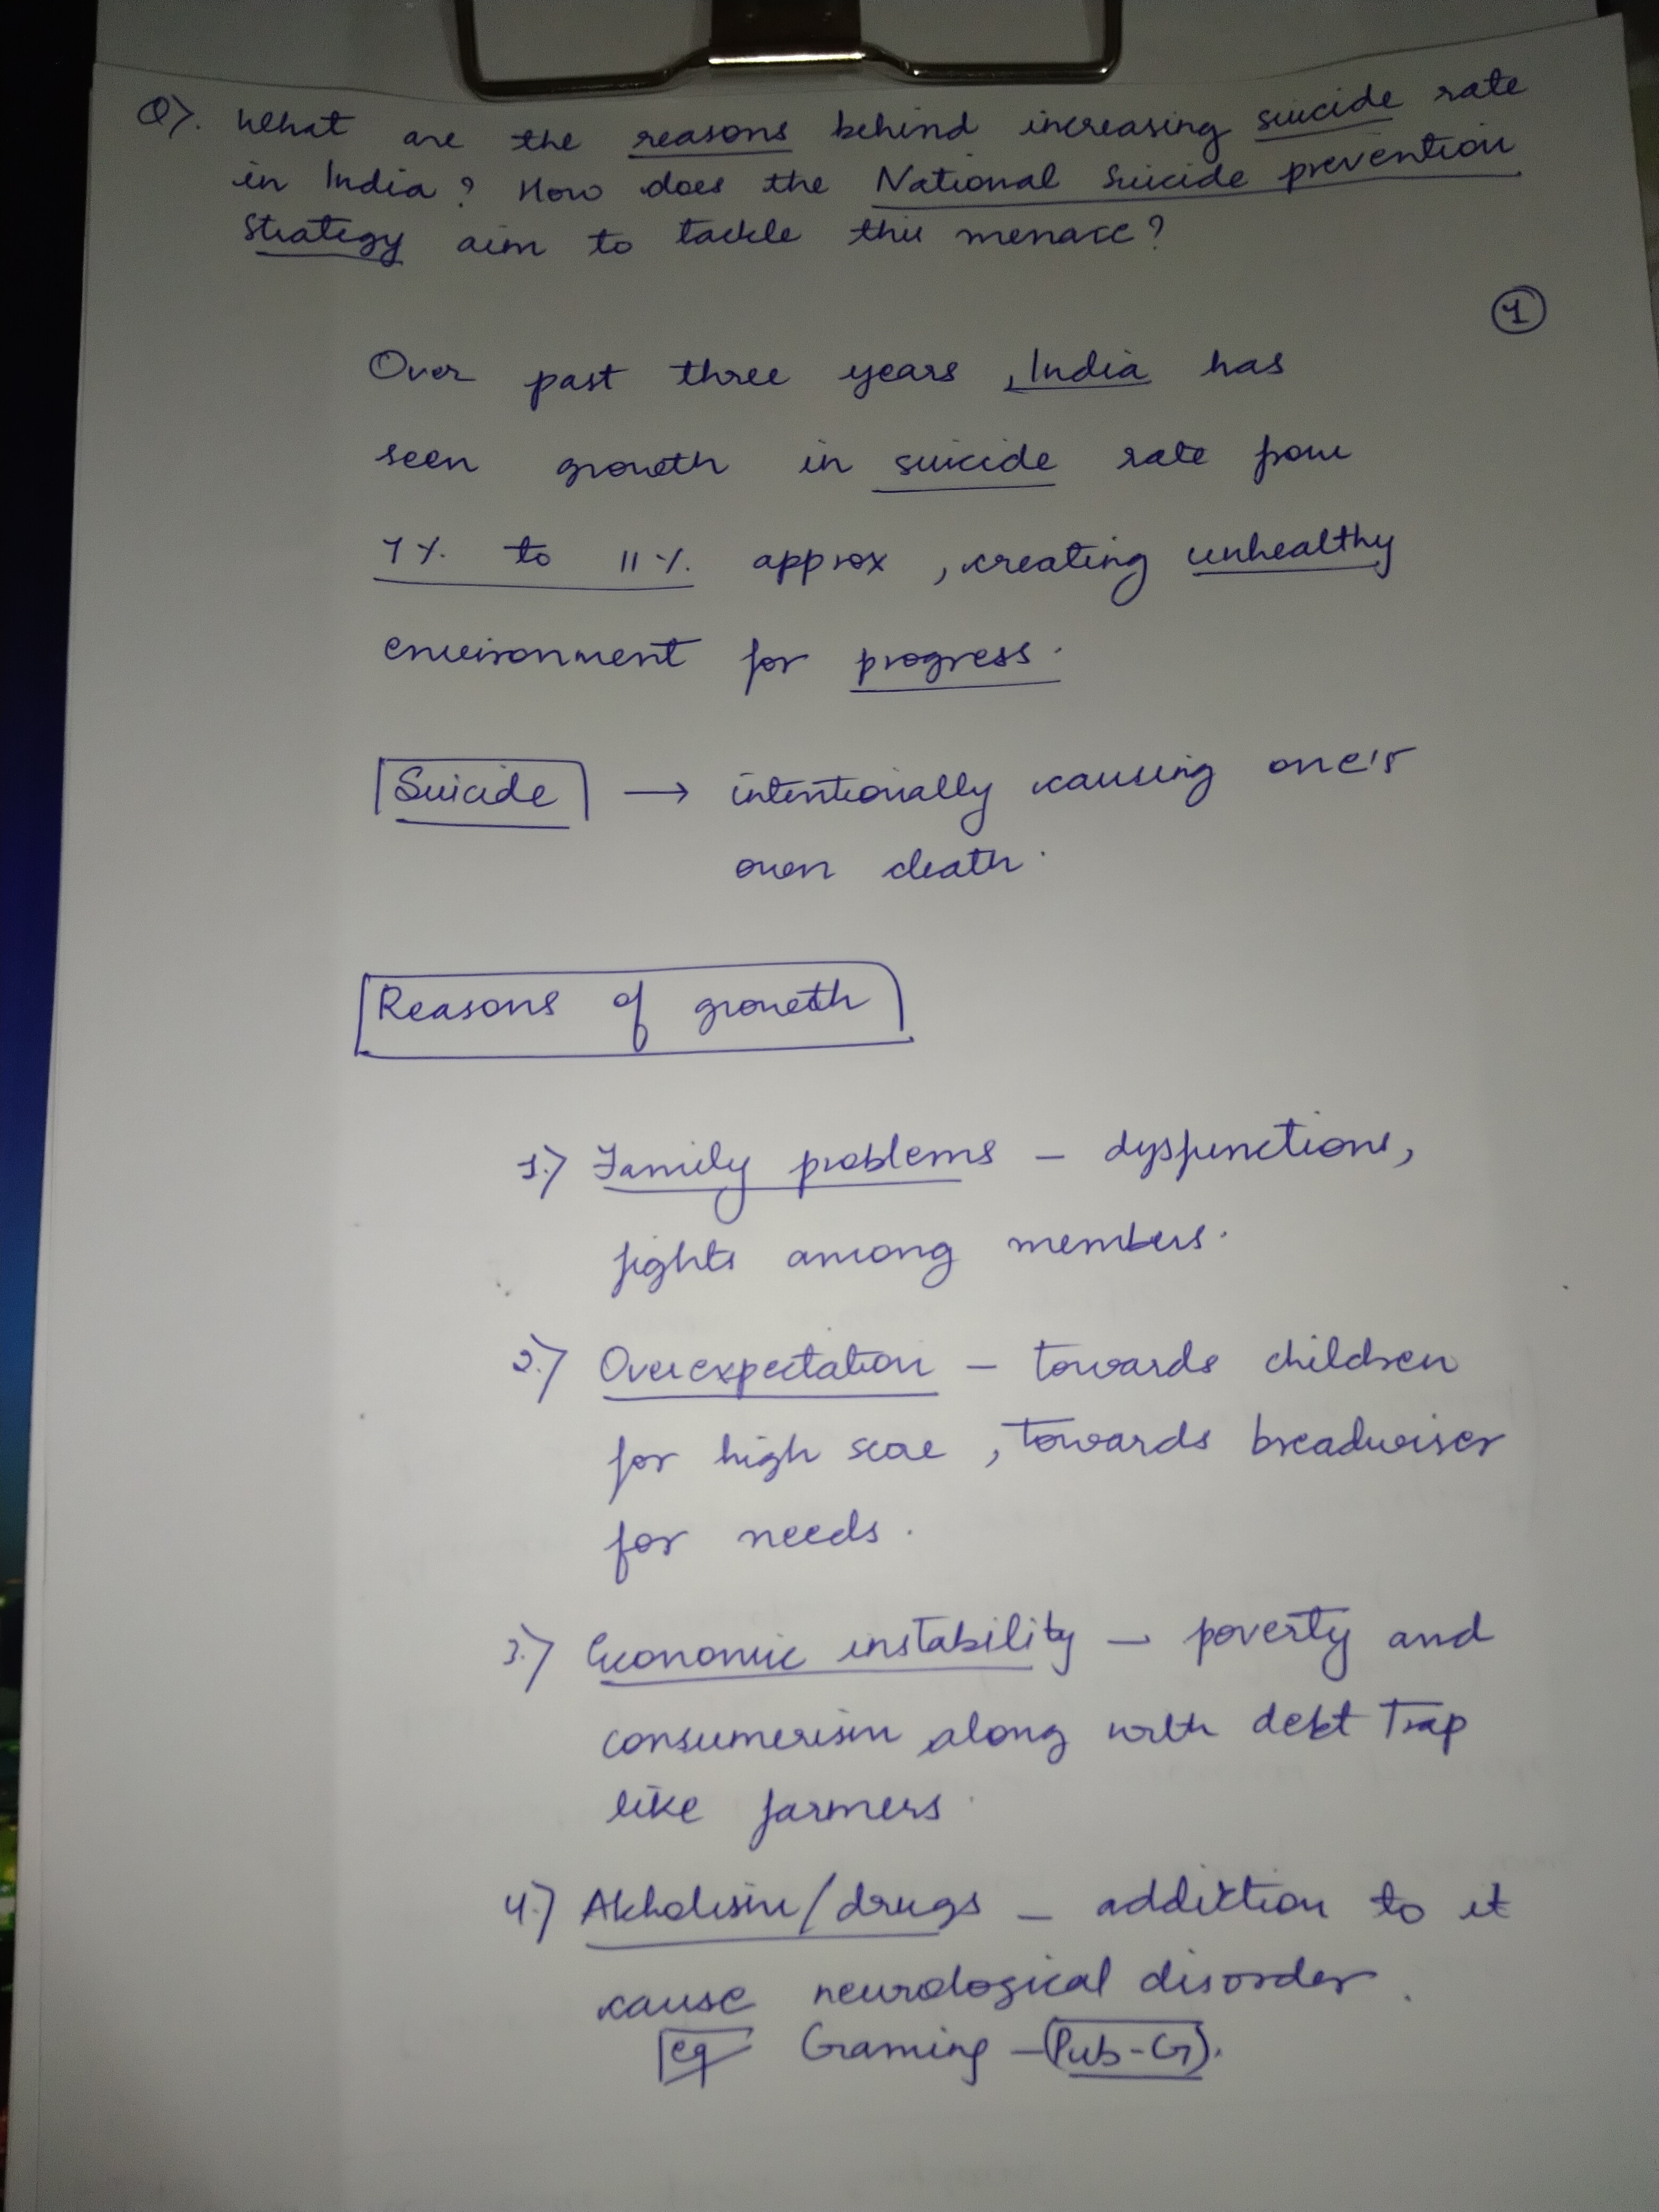 Q). What are the reasons behind increasing suicide rate
in India? How does the National Suicide prevention
Strategy aim to tackle this menace?
1
Over past three years, India has
seen growth in suicide rate from
7% to 11% approx, creating unhealthy
environment for progress.
Suicide → intentionally causing one's
own death.
Reasons of growth
1.) Family problems - dysfunctions,
fights among members.
2.) Overexpectation - towards children
for high score, towards breadwiser
for needs.
3.) Economic instability - poverty and
consumerism along with debt Trap
like farmers.
4.) Alcholism/drugs - addiction to it
cause neurological disorder.
eg Gaming - (Pub-G).